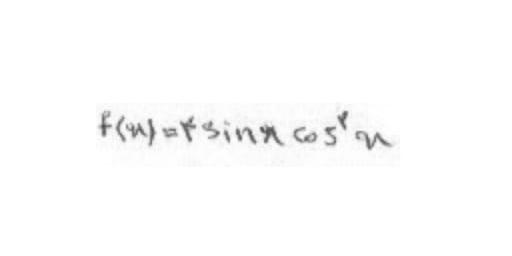 f(x)=۲ sinx cos^۲ x